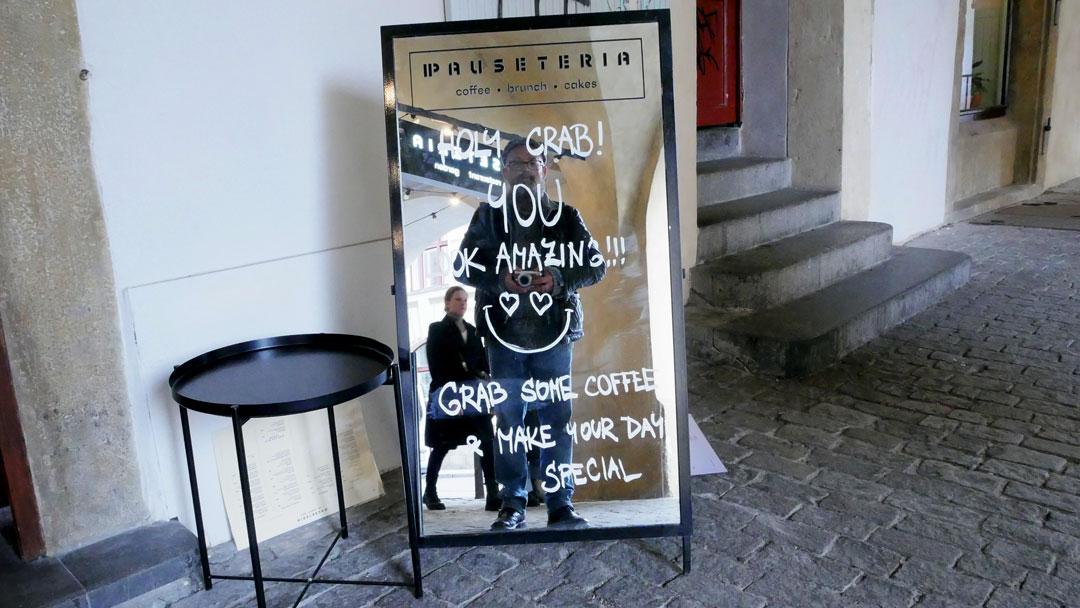 PAUSETERIA
coffee • brunch • cakes
HOLY CRAB!
YOU
LOOK AMAZING!!!
GRAB SOME COFFEE
& MAKE YOUR DAY
SPECIAL